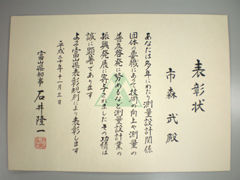 表彰状
市森武殿
あなたは多年にわたり測量設計関係
団体の要職にあって技術の向上や測量の
普及啓発に努めるなど測量設計業の
振興発展に寄与されましたその功績は
誠に顕著であります
よって富山県表彰規則により表彰します
平成二十年十一月三日
富山県知事 石井隆一